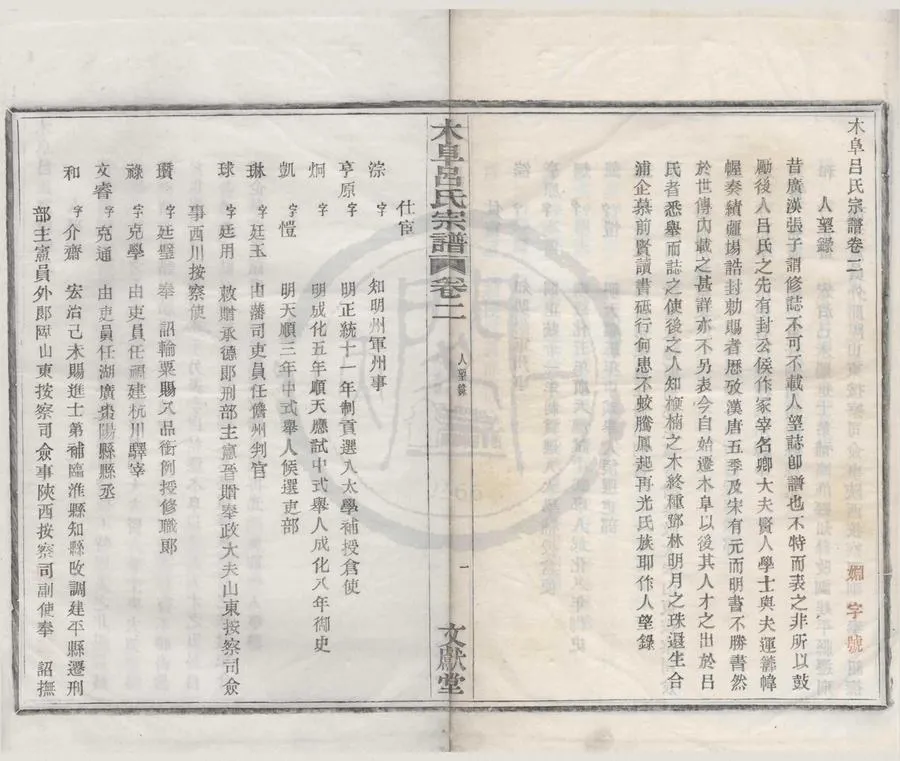 木阜呂氏宗譜卷二
嫻字號
人望錄
昔廣漢張子謂修誌不可不載人望誌卽譜也不特而表之非所以鼓
勵後人呂氏之先有封公侯作冢宰名卿大夫賢人學士與夫運籌幃
幄奏績疆場誥封勅賜者歷攷漢唐五季及宋有元而明書不勝書然
於世傳內載之甚詳亦不另表今自始遷木阜以後其人才之出於呂
氏者悉舉而誌之使後之人知楩楠之木終種鄧林明月之珠還生合
浦企慕前賢讀書砥行何患不蛟騰鳳起再光氏族耶作人望錄
木阜呂氏宗譜
卷二
人望錄
一
文獻堂
仕宦
淙 字 知明州軍州事
亨原 字 明正統十一年制貢選入太學補授倉使
炯 字 明成化五年順天應試中式舉人成化八年御史
凱 字愷 明天順三年中式舉人候選吏部
琳 字廷玉 由藩司吏員任儋州判官
球 字廷用 敕贈承德郎刑部主憲晉贈奉政大夫山東按察司僉
事西川按察使
瓚 字廷璧 奉 詔輸粟賜八品銜例授修職郎
祿 字克學 由吏員任福建杭川驛宰
文睿 字克通 由吏員任湖廣棗陽縣縣丞
和 字介齋 宏治己未賜進士第補臨淮縣知縣改調建平縣遷刑
部主憲員外郎陞山東按察司僉事陝西按察司副使奉 詔撫